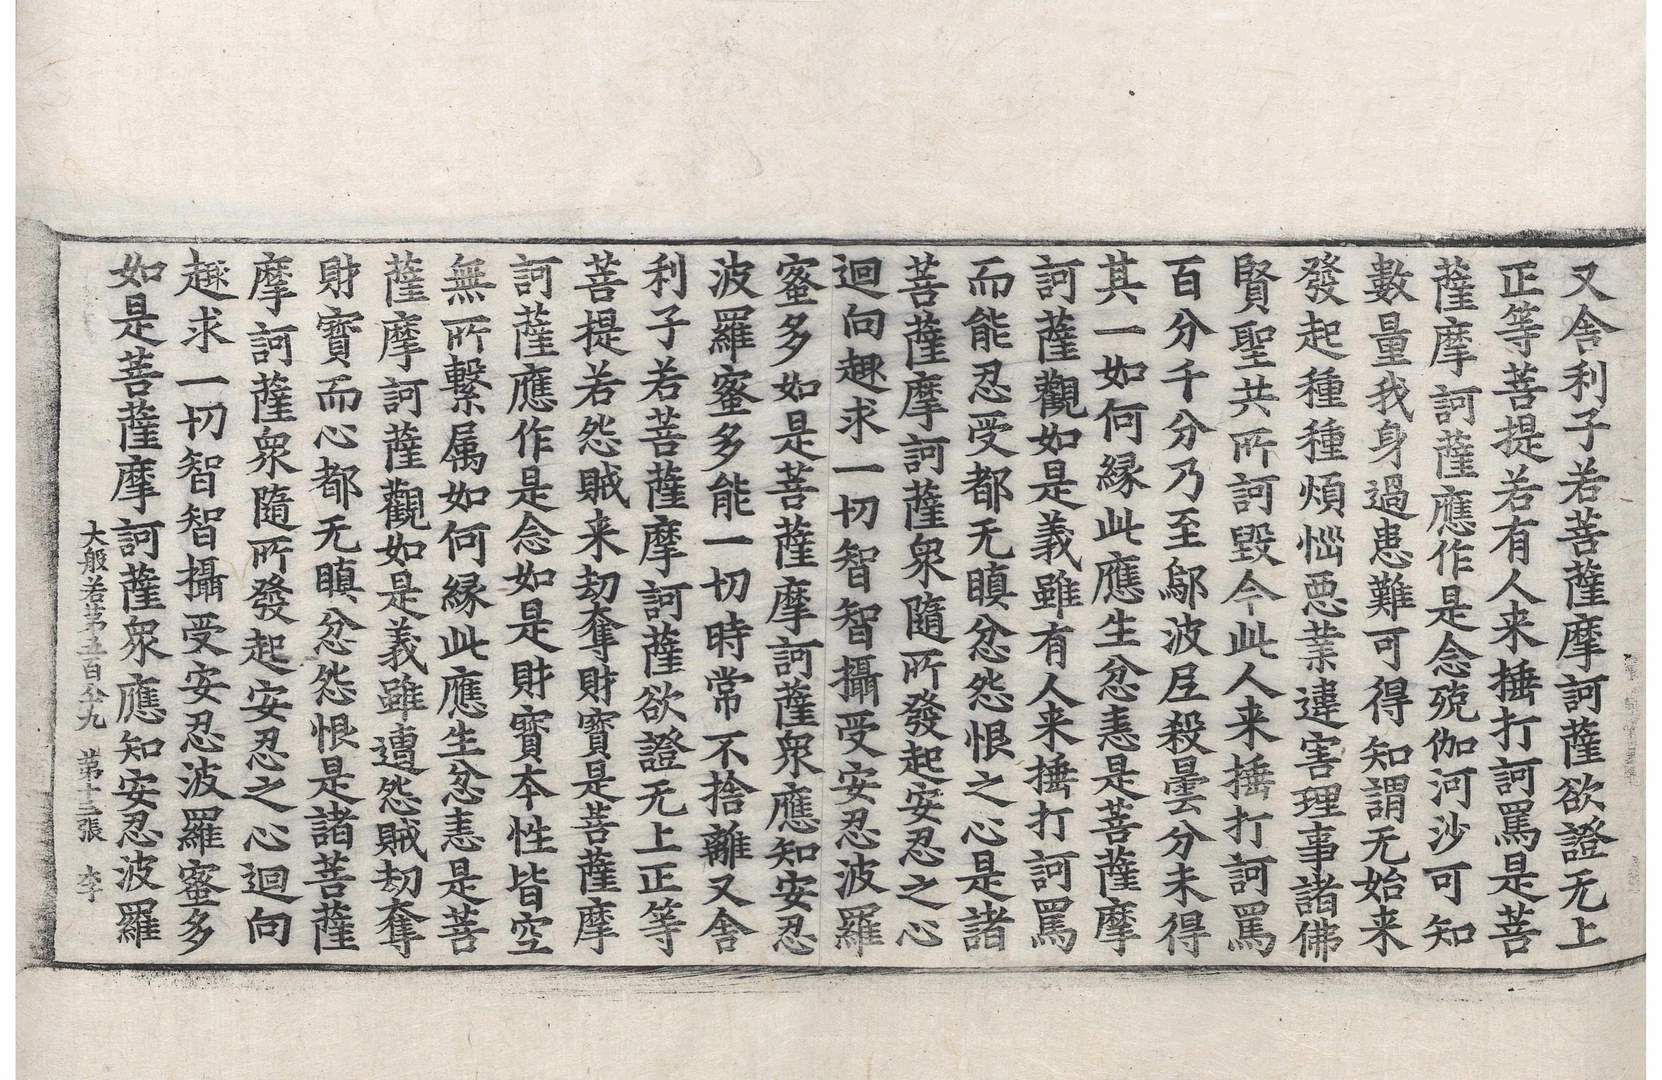 又舍利子若菩薩摩訶薩欲證无上
正等菩提若有人来捶打訶罵是菩
薩摩訶薩應作是念殑伽河沙可知
數量我身過患難可得知謂无始来
發起種種煩惱惡業違害理事諸佛
賢聖共所訶毀今此人来捶打訶罵
百分千分乃至鄔波尼殺曇分未得
其一如何緣此應生忿恚是菩薩摩
訶薩觀如是義雖有人来捶打訶罵
而能忍受都无瞋忿怨恨之心是諸
菩薩摩訶薩衆隨所發起安忍之心
迴向趣求一切智智攝受安忍波羅
蜜多如是菩薩摩訶薩衆應知安忍
波羅蜜多能一切時常不捨離又舍
利子若菩薩摩訶薩欲證无上正等
菩提若怨賊来劫奪財寶是菩薩摩
訶薩應作是念如是財寶本性皆空
無所繫属如何緣此應生忿恚是菩
薩摩訶薩觀如是義雖遭怨賊劫奪
財寶而心都无瞋忿怨恨是諸菩薩
摩訶薩衆隨所發起安忍之心迴向
趣求一切智智攝受安忍波羅蜜多
如是菩薩摩訶薩衆應知安忍波羅
大般若第五百八九　第十三張　李